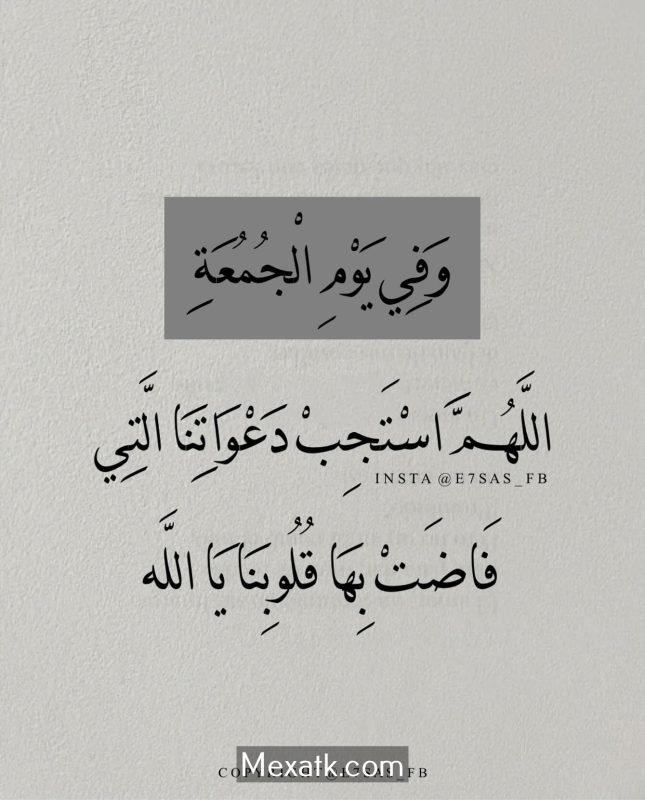 وَفِي يَوْمِ الْجُمُعَةِ
اللَّهُمَّ اسْتَجِبْ دَعْوَاتِنَا الَّتِي
INSTA @E7SAS_FB
فَاضَتْ بِهَا قُلُوبِنَا يَا اللَّه
Mexatk.com